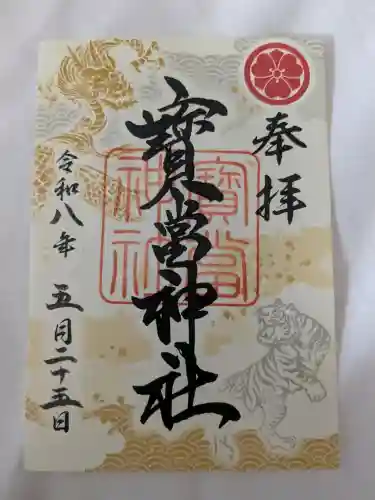 奉拝
寶當神社
寶當
神社
令和八年
五月二十五日